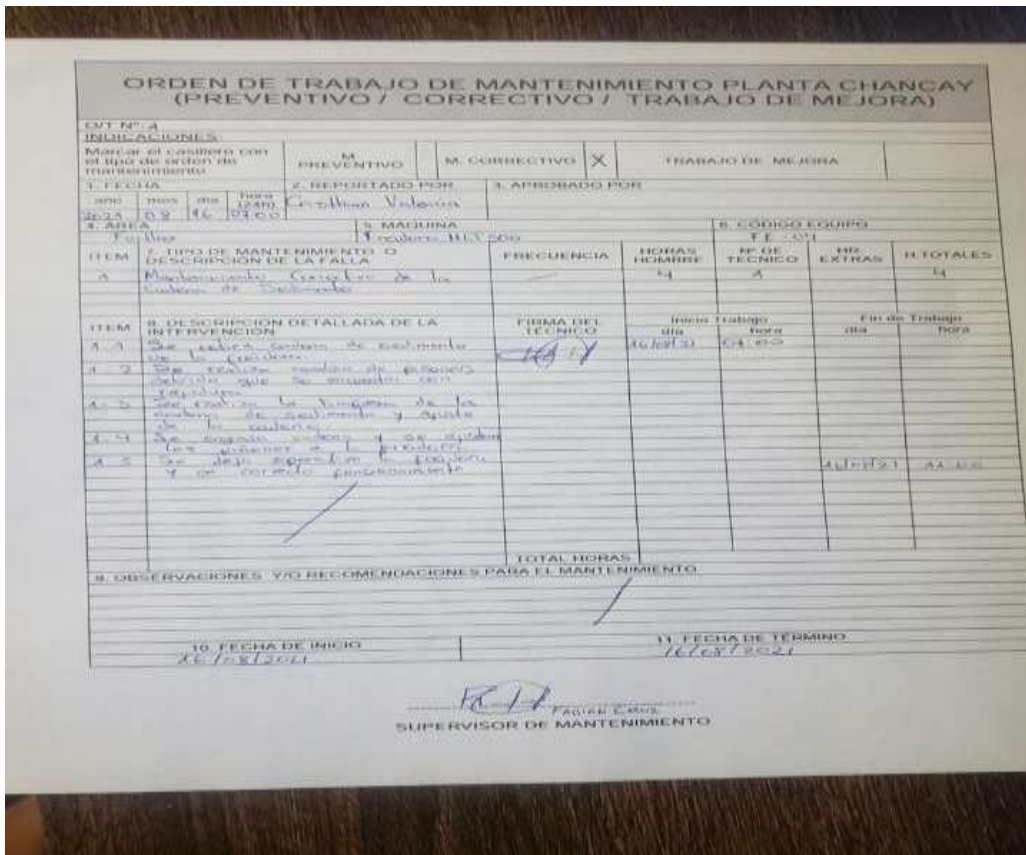 ORDEN DE TRABAJO DE MANTENIMIENTO PLANTA CHANCAY
(PREVENTIVO / CORRECTIVO / TRABAJO DE MEJORA)
O/T Nº: 1
INDICACIONES:
Marcar el casillero con
el tipo de orden de
mantenimiento
M.
PREVENTIVO
M. CORRECTIVO X
TRABAJO DE MEJORA
1. FECHA
2. REPORTADO POR
3. APROBADO POR
año mes día hora (24H)
2021 08 16 07:00
Cristhian Valencia
4. AREA
5. MAQUINA
6. CÓDIGO EQUIPO
Freidora
FE-04
ITEM
7. TIPO DE MANTENIMIENTO O
DESCRIPCIÓN DE LA FALLA
FRECUENCIA
HORAS
HOMBRE
Nº DE
TECNICO
HR.
EXTRAS
H.TOTALES
1 Mantenimiento Correctivo de la — 4 1 4
cadena de Sedimento
ITEM
8. DESCRIPCIÓN DETALLADA DE LA
INTERVENCIÓN
FIRMA DEL
TÉCNICO
Inicio Trabajo
día hora
Fin de Trabajo
día hora
1.1 Se retira cadena de sedimento 16/08/21 07:00
de la freidora
1.2 Se realiza cambio de piñones
debido que se encuentra con
1.3 Se realiza la limpieza de la
cadena de sedimento y ajuste
de la cadena
1.4 Se cadena y se ajustan
los piñones a la freidora
1.5 Se deja operativo la freidora
y en correcto funcionamiento 16/08/21 11:00
TOTAL HORAS
9. OBSERVACIONES Y/O RECOMENDACIONES PARA EL MANTENIMIENTO
10. FECHA DE INICIO
16/08/2021
11. FECHA DE TÉRMINO
16/08/2021
FABIAN CRUZ
SUPERVISOR DE MANTENIMIENTO